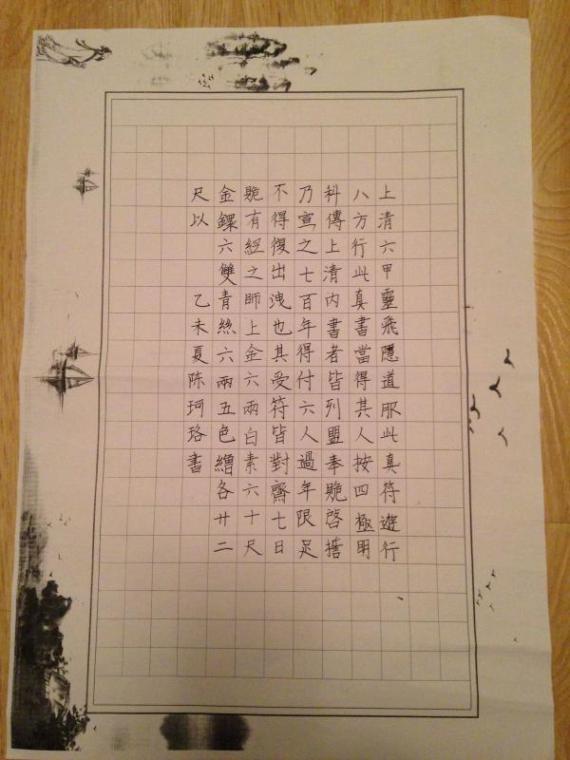 上清六甲靈飛隱道服此真符遊行
八方行此真書當得其人按四極明
科傳上清内書者皆列盟奉贶啓擔
乃宣之七百年得付六人過年限足
不得復出洩也其受符皆對齋七日
贶有經之師上金六兩白素六十尺
金鐶六雙青絲六兩五色繒各廿二
尺以　　乙未夏陈珂珞書